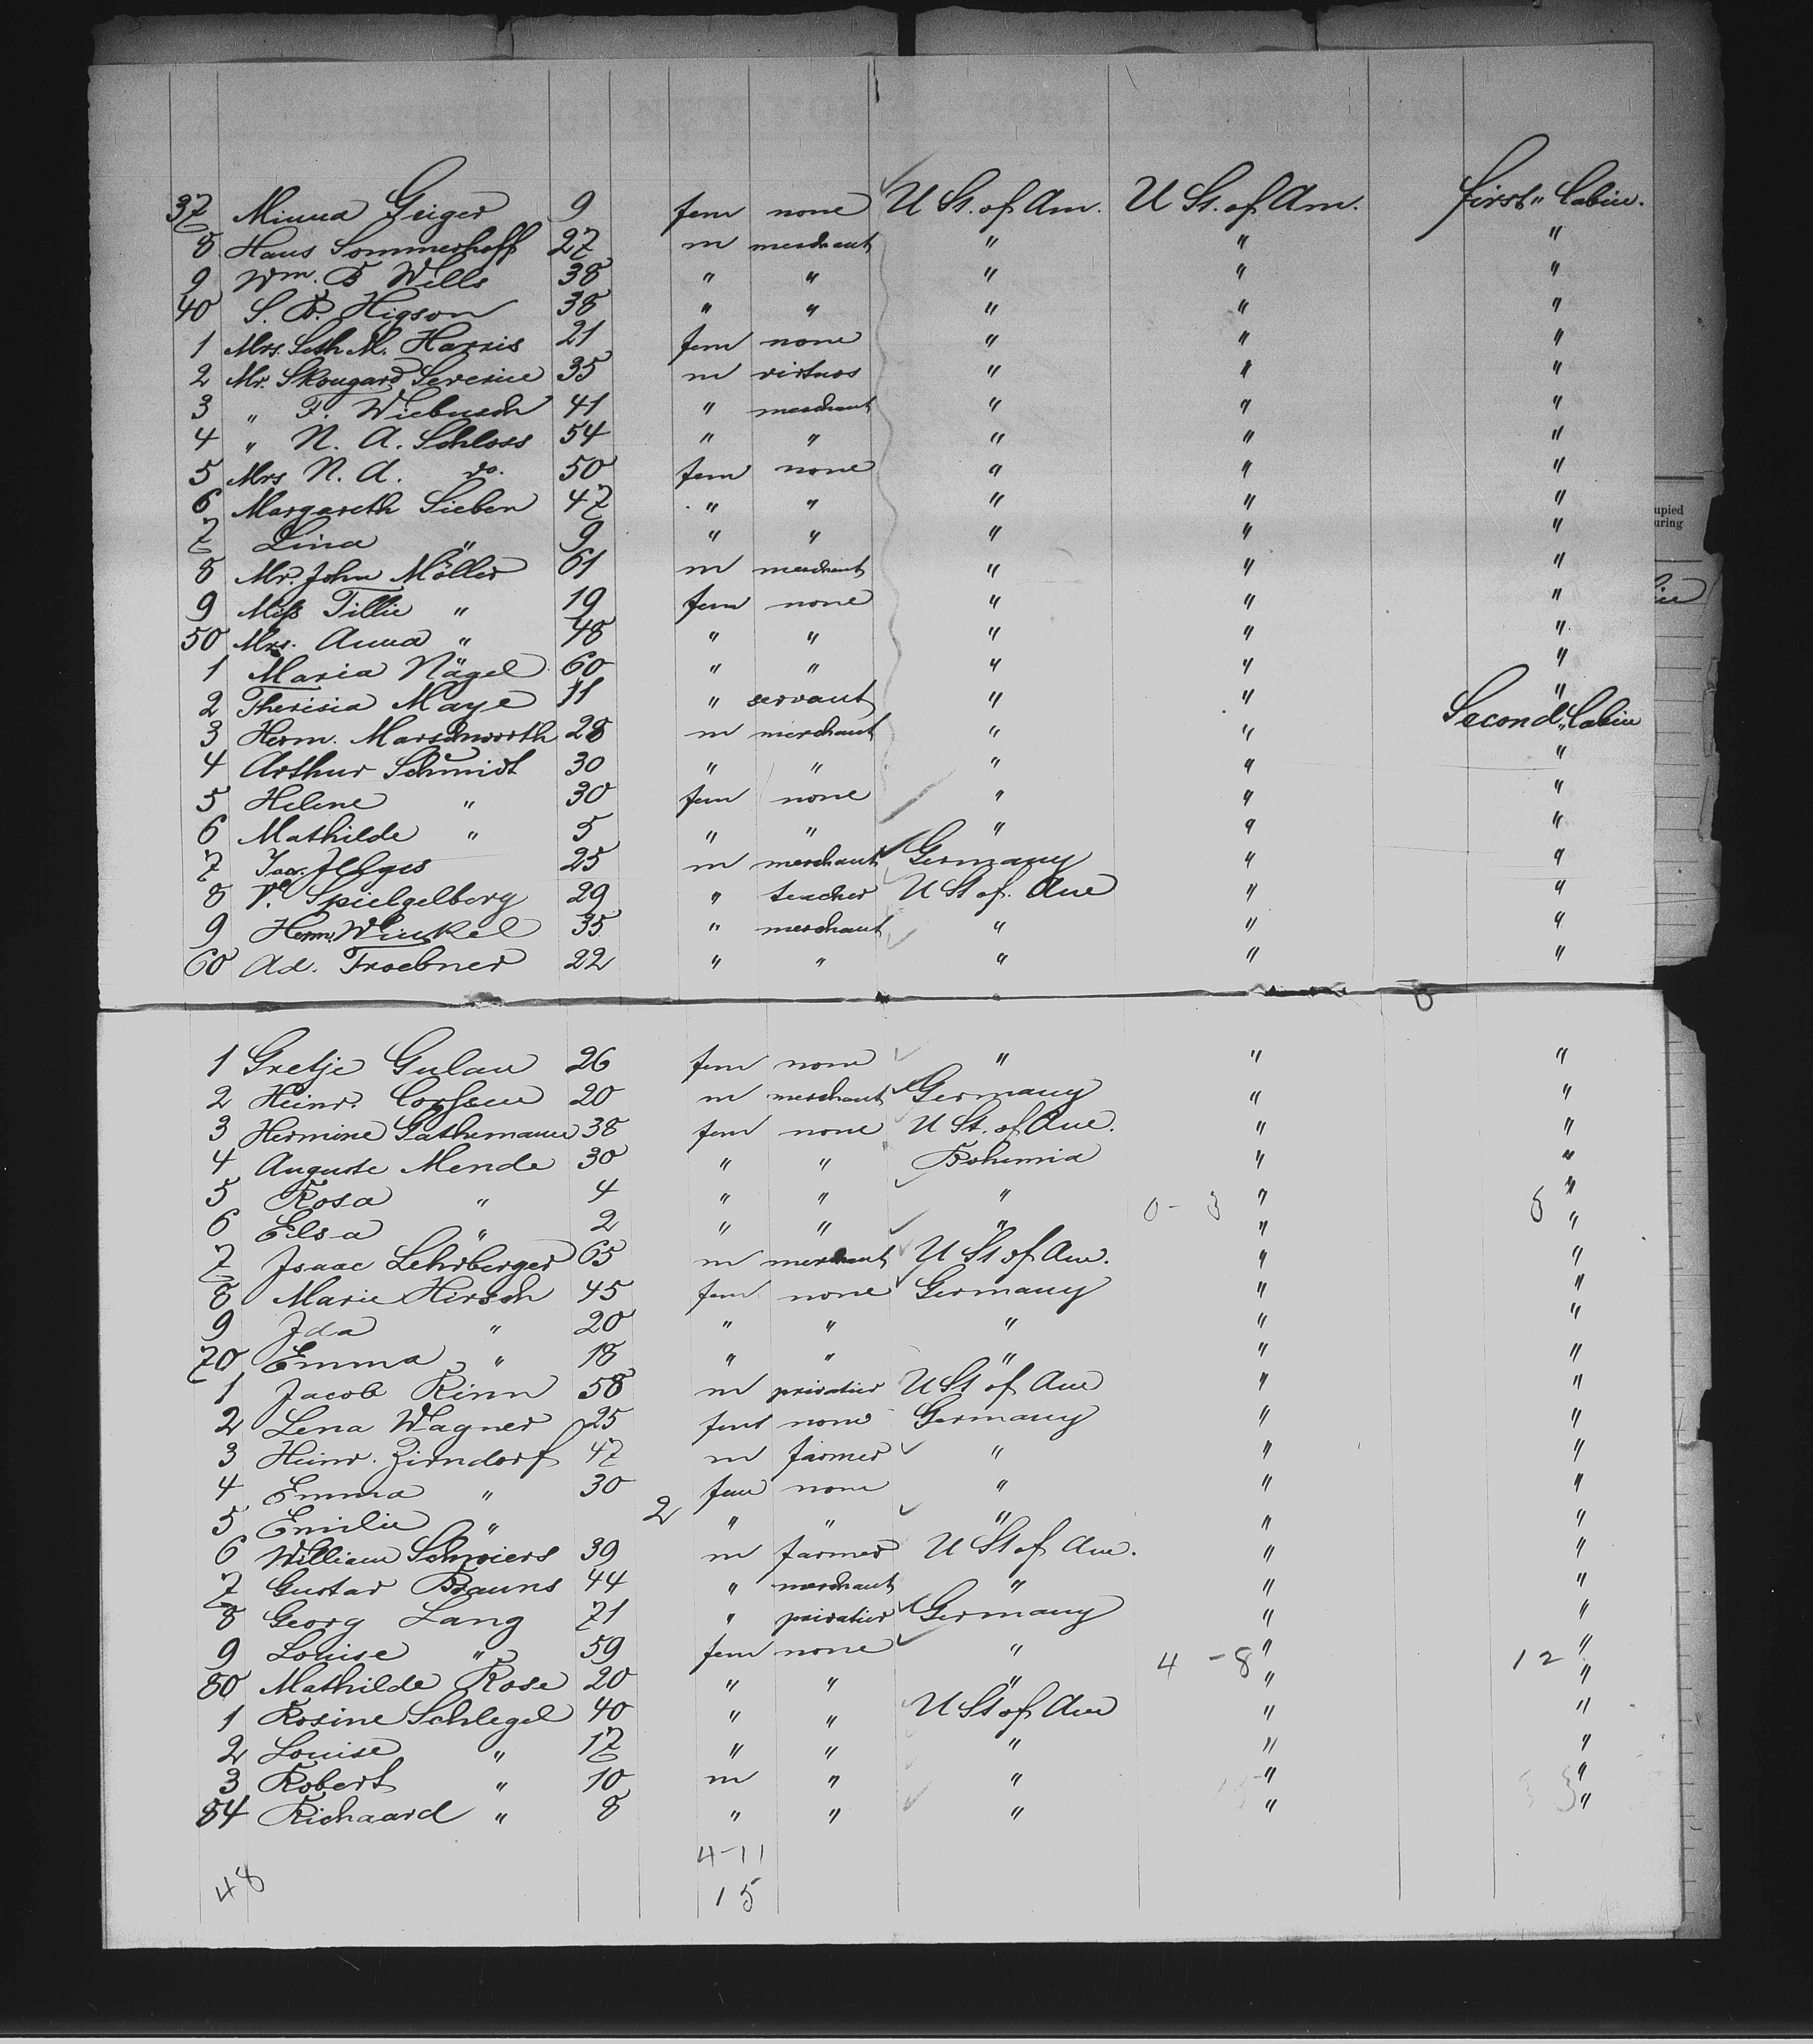 37 Minna Geiger 9 fem none U St. of Am. U St. of Am. first " Cabin.
8 Hans Sommerhoff 27 m merchant " " "
9 Wm. B Wills 38 " " " " "
40 S. B. Higson 38 " " " " "
1 Mrs. Seth M. Harris 21 fem none " " "
2 Mr. Skougard Severine 35 m virtuos " " "
3 " F. Wiebusch 41 " merchant " " "
4 " N. A. Schloss 54 " " " " "
5 Mrs N. A. do. 50 fem none " " "
6 Margareth Sieben 47 " " " " "
upied
uring
7 Lina " 9 " " " " "
8 Mr. John Möller 61 m merchant " " "
9 Miss Tillie " 19 fem none " " "
50 Mrs. Anna " 48 " " " " "
1 Maria Nägel 60 " " " " "
2 Therisia Maye 11 " servant " " "
3 Herm. Marschworth 28 m merchant " " Second " Cabin
4 Arthur Schmidt 30 " " " " "
5 Helene " 30 fem none " " "
6 Mathilde " 5 " " " " "
7 Jllges 25 m merchant Germany " "
8 Spielgelberg 29 " teacher U St of. Am " "
9 Herm. Winkel 35 " merchant " " "
60 Ad. Troebner 22 " " " " "
1 Gretje Gulau 26 fem none " " "
2 Heinr. Corssen 20 m merchant Germany " "
3 Hermine Gathemann 38 fem none U St. of Am. " "
4 Auguste Mende 30 " " Bohemia " "
5 Rosa " 4 " " " 0 - 3 " "
6 Elsa " 2 " " " " "
7 Isaac Lehrberger 65 m merchant U St of Am. " "
8 Marie Hirsch 45 fem none Germany " "
9 Ida " 20 " " " " "
70 Emma " 18 " " " " "
1 Jacob Rinn 58 m privatier U St of Am " "
2 Lena Wagner 25 fem none Germany " "
3 Heinr. Zirndorf 47 m farmer " " "
4 Emma " 30 fem none " " "
5 Emilie " 2 " " " " "
6 William Schwiers 39 m farmer U St of Am. " "
7 Gustav Brauns 44 " merchant " " "
8 Georg Lang 71 " privatier Germany " "
9 Louise " 59 fem none " 4 - 8 " 12 "
80 Mathilde Rose 20 " " " " "
1 Rosine Schlegel 40 " " U St of Am " "
2 Louise " 17 " " " " "
3 Robert " 10 m " " " "
84 Richaard " 8 " " " " "
4-11
48 15